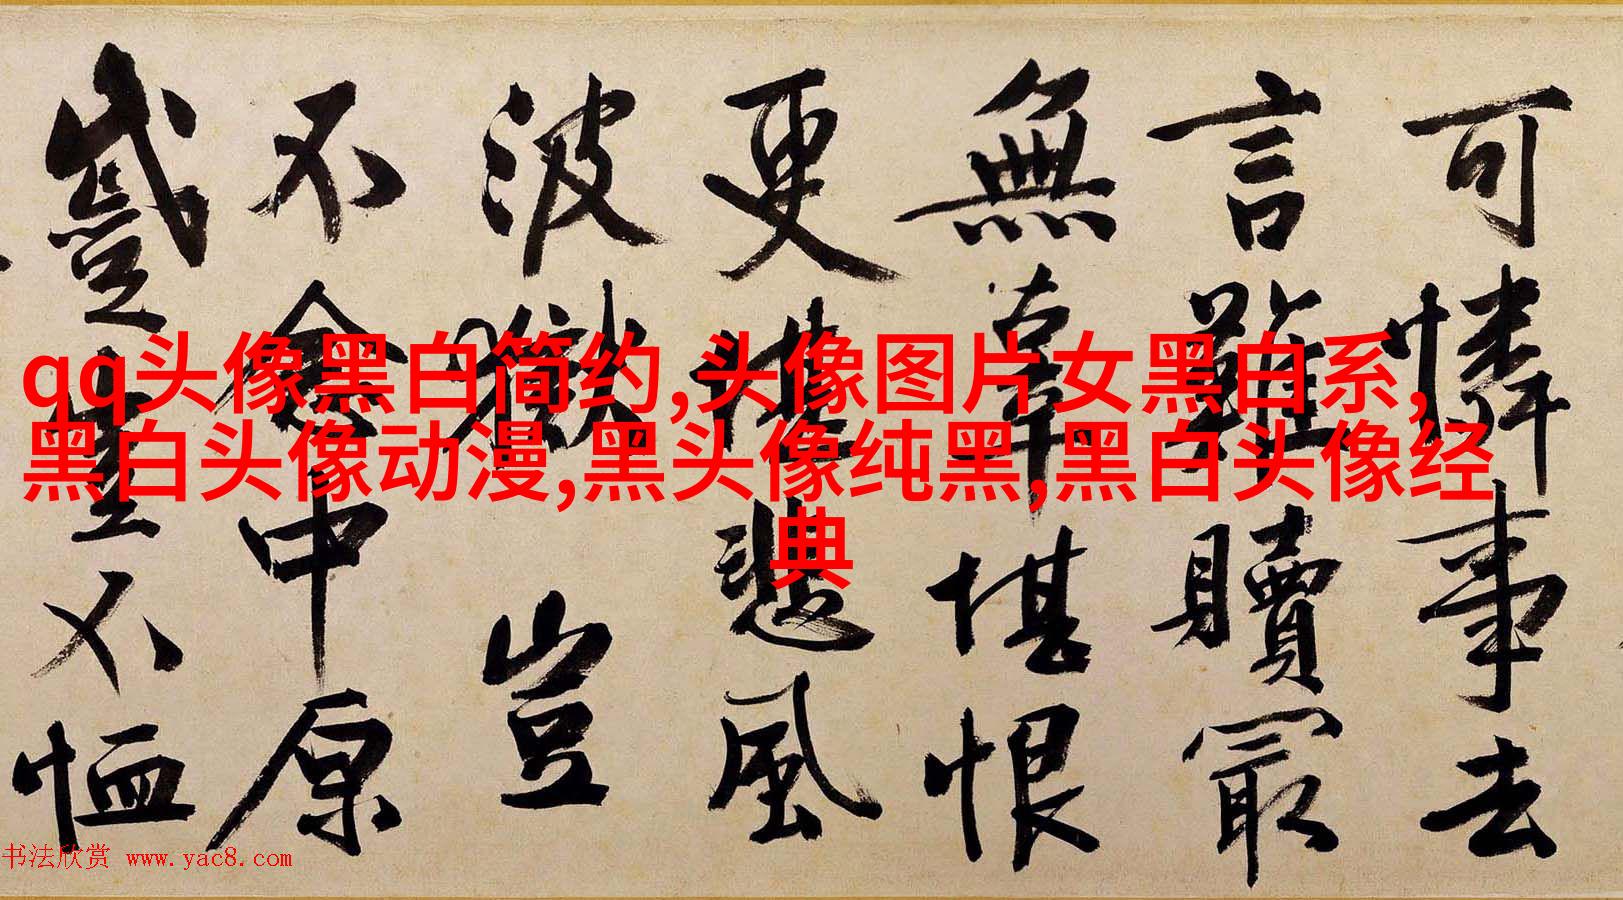 qq头像黑白简约,头像图片女黑白系,
黑白头像动漫,黑头像纯黑,黑白头像经
典
可憐事去
言難贖冣
無辜堪恨
更悲風
波獄豈
不念中原
蹙豈不恤
书法欣赏 www.yac8.com